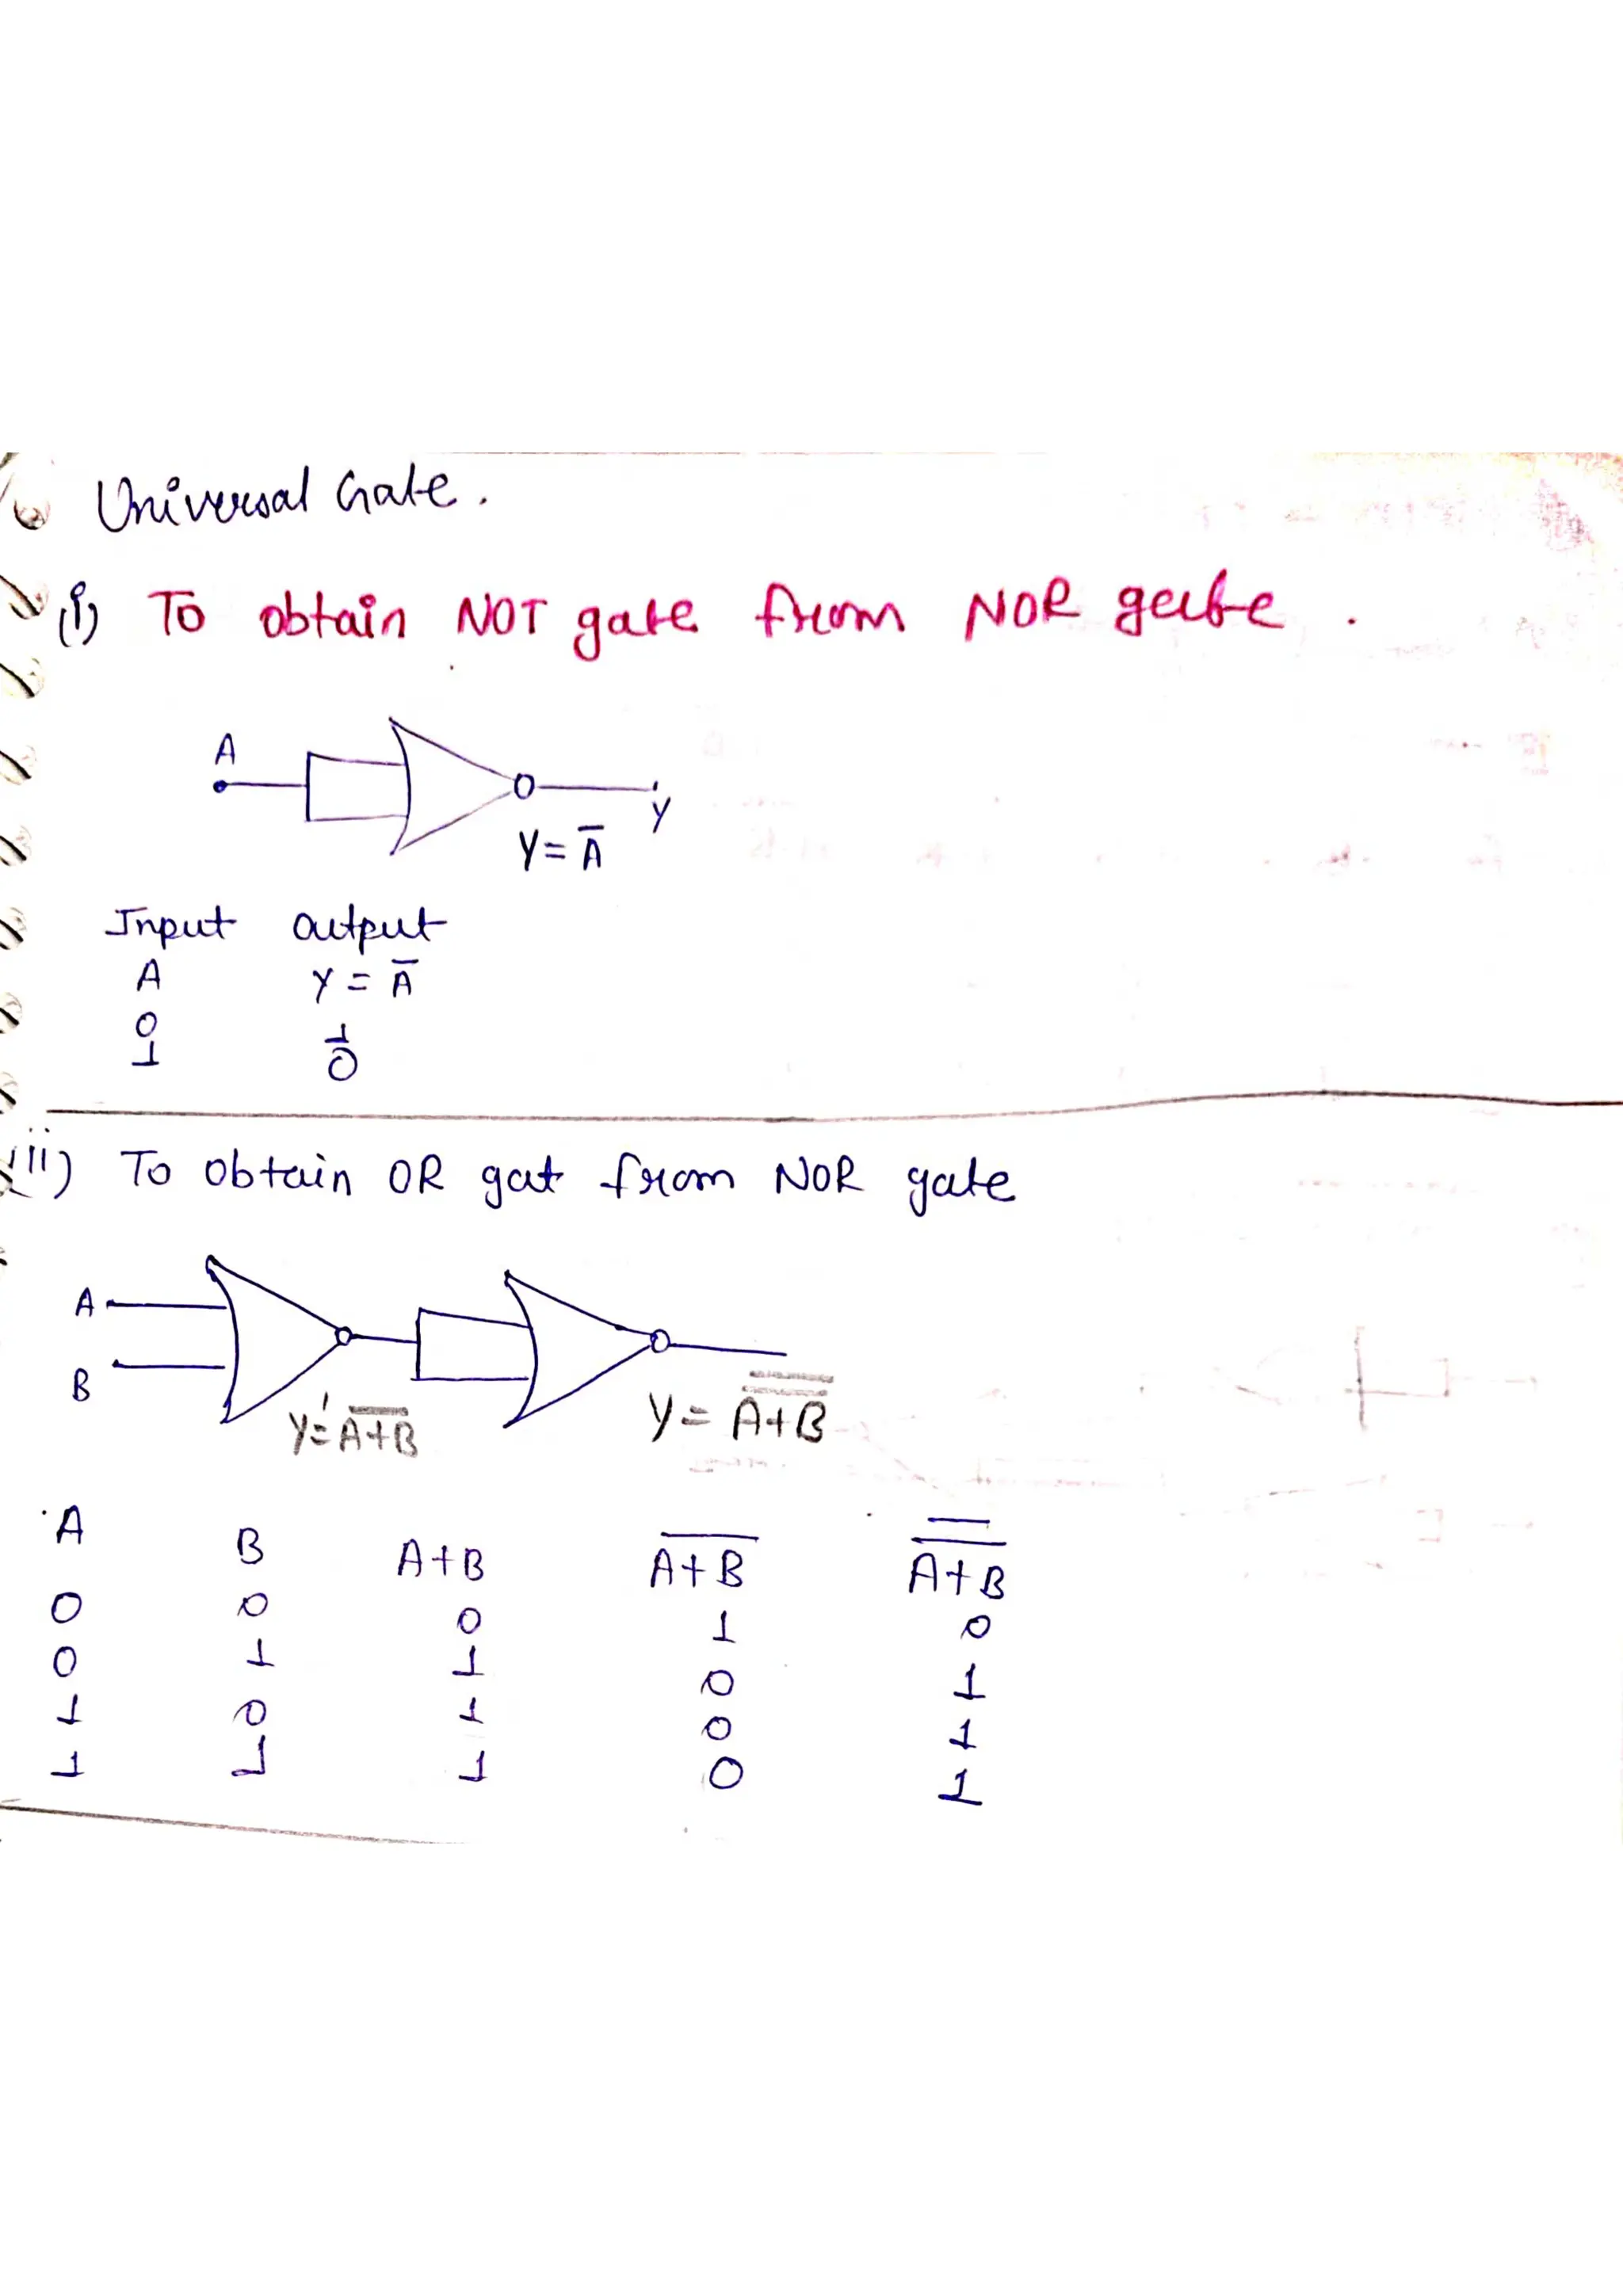 Universal Gate.
(i) To obtain NOT gate from NOR gate.
A
Y
Y = A̅
Input output
A Y = A̅
0 1
1 0
(ii) To obtain OR gat from NOR gate
A
B
Y' = A̅+̅B̅
Y = A̿+̿B̿
A B A+B A̅+̅B̅ A̿+̿B̿
0 0 0 1 0
0 1 1 0 1
1 0 1 0 1
1 1 1 0 1